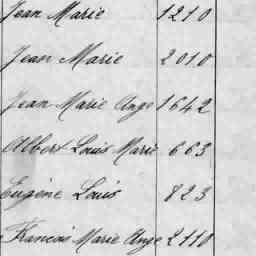 Jean Marie 1210
Jean Marie 2010
Jean Marie Ange 1642
Albert Louis Marie 663
Eugène Louis 823
Francois Marie Ange 2110